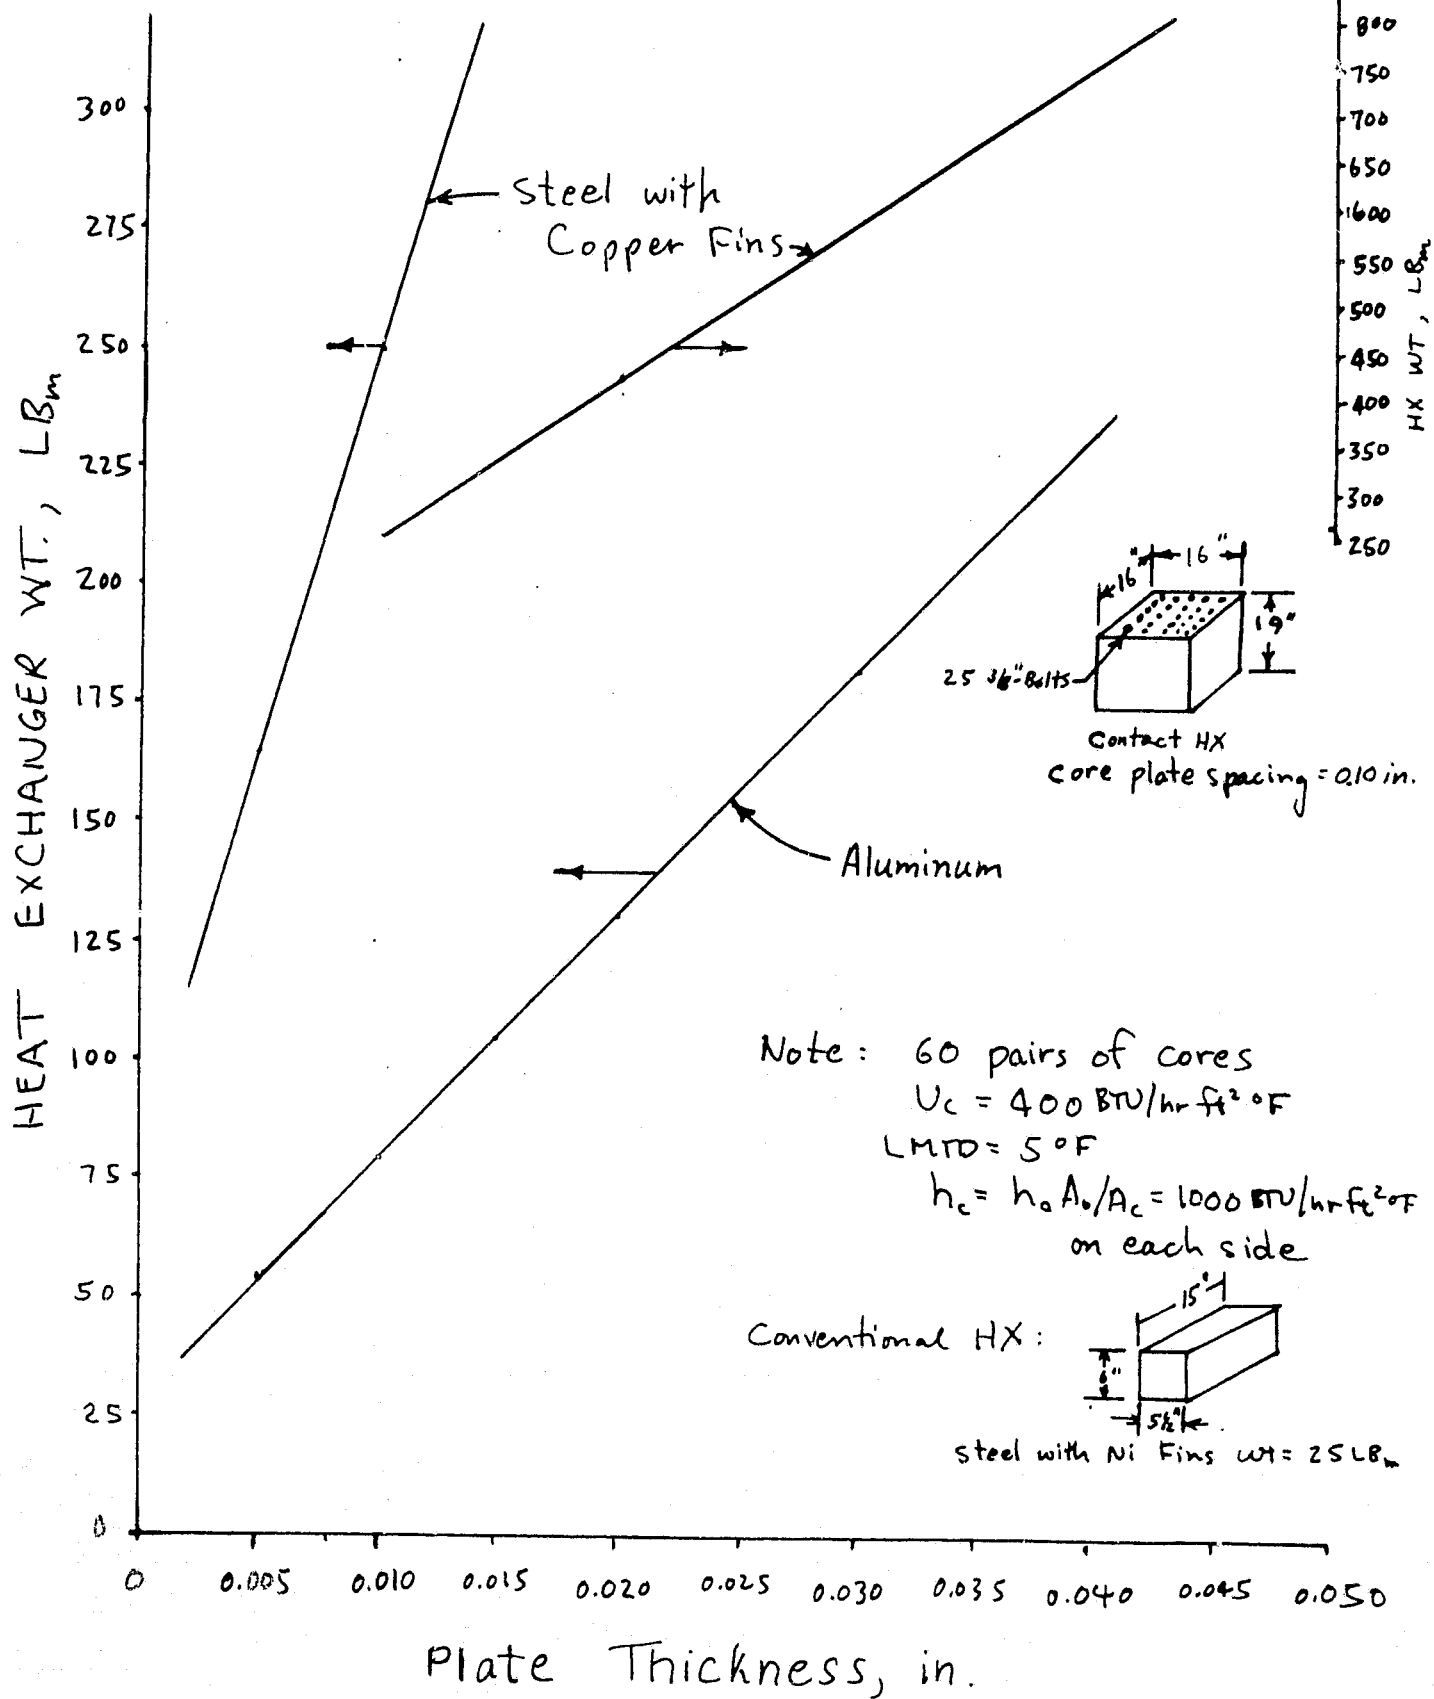 HEAT EXCHANGER WT., LBm
300
275
250
225
200
175
150
125
100
75
50
25
0
HX WT, LBm
800
750
700
650
1600
550
500
450
400
350
300
250
Steel with
Copper Fins
16"
16"
19"
25 3/8"-Bolts
Contact HX
Core plate spacing = 0.10 in.
Aluminum
Note: 60 pairs of cores
Uc = 400 BTU/hr ft² °F
LMTD = 5 °F
hc = ho Ao/Ac = 1000 BTU/hr ft² °F
on each side
Conventional HX:
15"
6"
5½"
Steel with Ni Fins wt = 25 LBm
0 0.005 0.010 0.015 0.020 0.025 0.030 0.035 0.040 0.045 0.050
Plate Thickness, in.